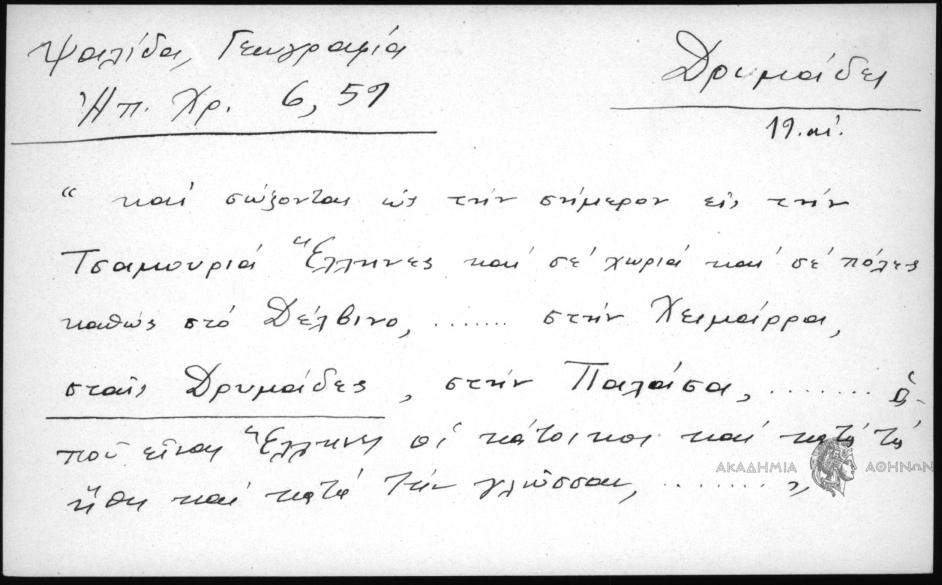 Ψαλίδα, Γεωγραφία
Ἠπ. Χρ. 6, 59
Δρυμάδες
19. αἰ.
“ καὶ σώζονται ὡς τὴν σήμερον εἰς τὴν
Τσαμουριά Ἕλληνες καὶ σὲ χωριὰ καὶ σὲ πόλες
καθὼς στὸ Δέλβινο, ....... στὴν Χειμάρρα,
σταῖς Δρυμάδες, στὴν Παλάσα, ....... ὁ-
ποῦ εἶναι Ἕλληνες οἱ κάτοικοι καὶ κατὰ τὰ
ἤθη καὶ κατὰ τὴν γλῶσσαν, ........ „
ΑΚΑΔΗΜΙΑ ΑΘΗΝΩΝ